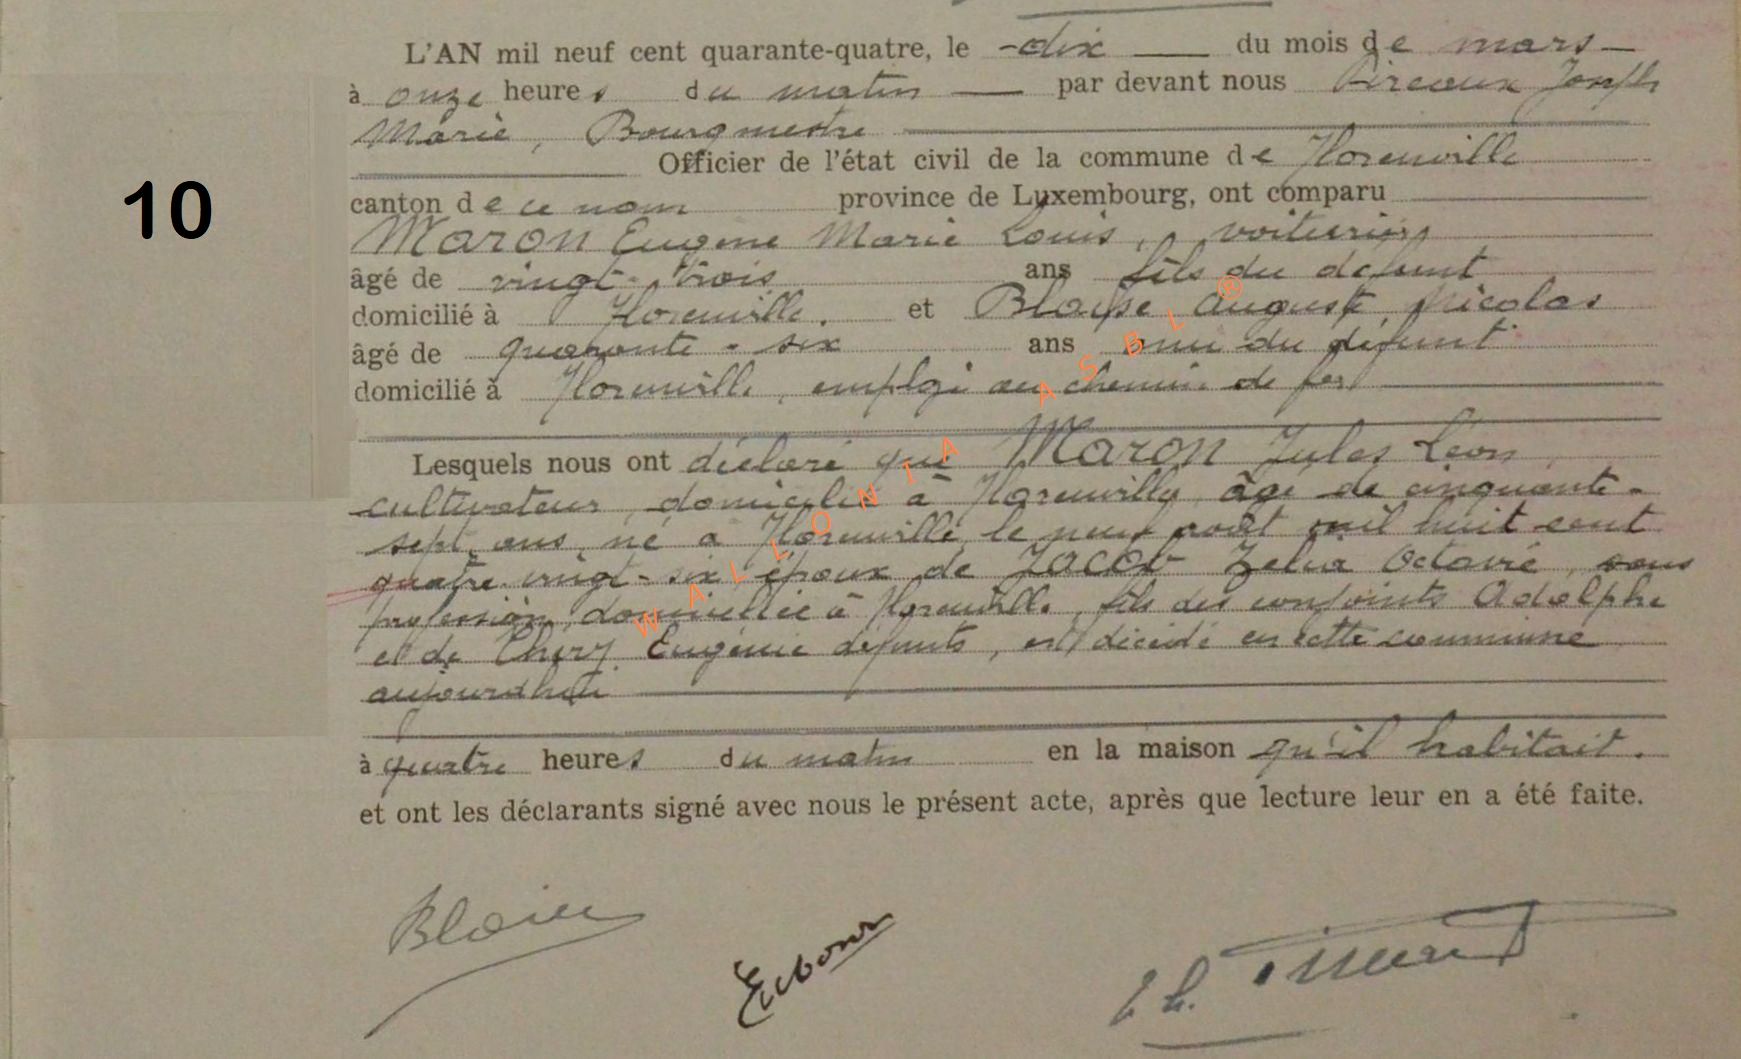 L'AN mil neuf cent quarante-quatre, le dix du mois de mars
à onze heures du matin par devant nous Pireaux Joseph
Marie, Bourgmestre
10
Officier de l'état civil de la commune de Florenville
canton de ce nom province de Luxembourg, ont comparu
Maron Eugène Marie Louis, voiturier
âgé de vingt-trois ans fils du défunt
domicilié à Florenville. et Blaise Auguste Nicolas
âgé de quarante-six ans ami du défunt
domicilié à Florenville, employé au chemin de fer
Lesquels nous ont déclaré que Maron Jules Léon,
cultivateur, domicilié à Florenville, âgé de cinquante-
sept ans, né à Florenville, le neuf août mil huit cent
quatre vingt-six, époux de Jacob Zelia Octavie, sans
profession, domiciliée à Florenville, fils des conjoints Adolphe
et de Thiry Eugénie défunts, est décédé en cette commune
aujourdhui
à quatre heures du matin en la maison qu'il habitait.
et ont les déclarants signé avec nous le présent acte, après que lecture leur en a été faite.
WALLONIA ASBL ®